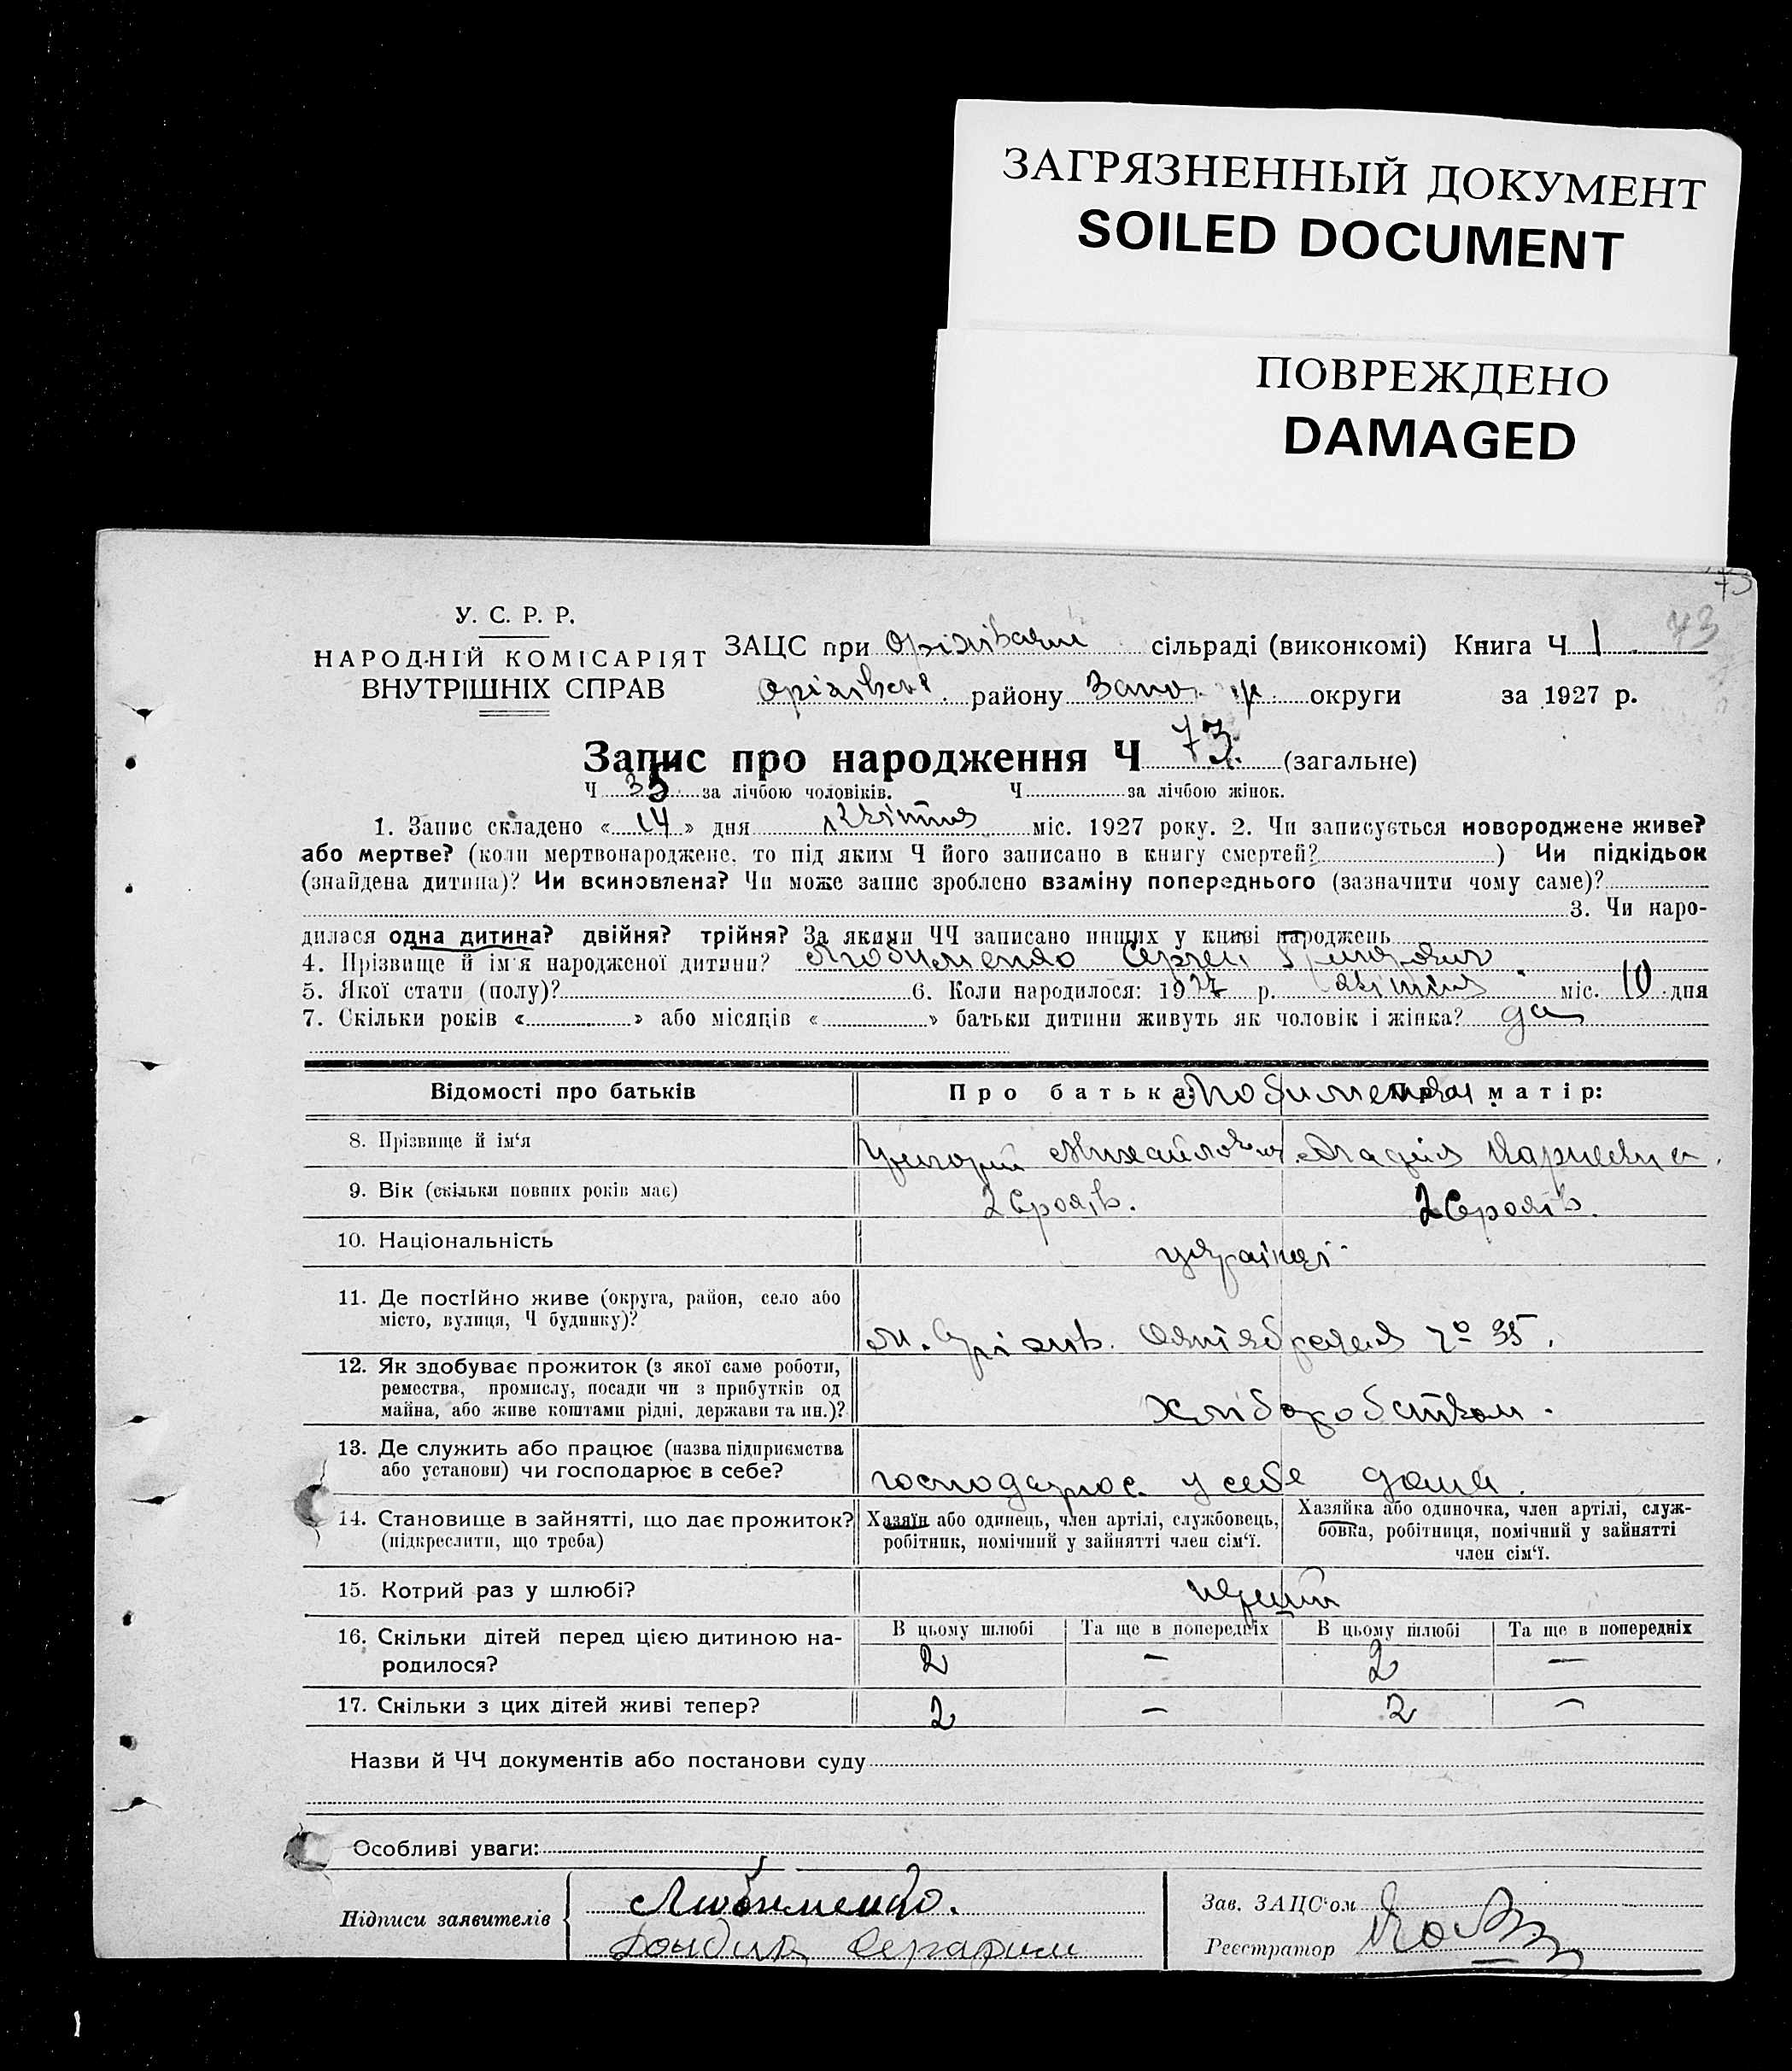 ЗАГРЯЗНЕННЫЙ ДОКУМЕНТ
SOILED DOCUMENT
ПОВРЕЖДЕНО
DAMAGED
73
У. С. Р. Р.
НАРОДНІЙ КОМІСАРІЯТ
ВНУТРІШНІХ СПРАВ
ЗАЦС при сільраді (виконкомі) Книга Ч 1
району округи за 1927 р.
Запис про народження Ч 73. (загальне)
Ч 35 за лічбою чоловіків. Ч за лічбою жінок.
1. Запис складено « 14 » дня квітня міс. 1927 року. 2. Чи записується новороджене живе?
або мертве? (коли мертвонароджене, то під яким Ч його записано в книгу смертей? ) Чи підкідьок
(знайдена дитина)? Чи всиновлена? Чи може запис зроблено взаміну попереднього (зазначити чому саме)?
3. Чи наро-
дилася одна дитина? двійня? трійня? За якими ЧЧ записано инших у книзі народжень
4. Прізвище й ім'я народженої дитини? Любименко Сергей Григорович
5. Якої стати (полу)? 6. Коли народилося: 1927 р. квітня міс. 10 дня
7. Скільки років « » або місяців « » батьки дитини живуть як чоловік і жінка? да
Відомості про батьків Про батька: Про матір:
Любименки
8. Прізвище й ім'я Григорій Михайлович Карпівна
9. Вік (скільки повних років має) 26 років. 26 років.
10. Національність українці
11. Де постійно живе (округа, район, село або
місто, вулиця, Ч будинку)? м. Оріхів. Октябрська № 35.
12. Як здобуває прожиток (з якої саме роботи,
ремества, промислу, посади чи з прибутків од
майна, або живе коштами рідні, держави та ин.)? Хліборобством.
13. Де служить або працює (назва підприємства
або установи) чи господарює в себе? господарює у себе дома.
14. Становище в зайнятті, що дає прожиток?
(підкреслити, що треба)
Хазяїн або одинець, член артілі, службовець,
робітник, помічний у зайнятті член сім'ї.
Хазяйка або одиночка, член артілі, служ-
бовка, робітниця, помічний у зайнятті
член сім'ї.
15. Котрий раз у шлюбі? перший
16. Скільки дітей перед цією дитиною на-
родилося?
В цьому шлюбі Та ще в попередніх В цьому шлюбі Та ще в попередніх
2 — 2 —
17. Скільки з цих дітей живі тепер? 2 — 2 —
Назви й ЧЧ документів або постанови суду
Особливі уваги:
Підписи заявителів
Любименко.
Зав. ЗАЦС'ом
Реєстратор